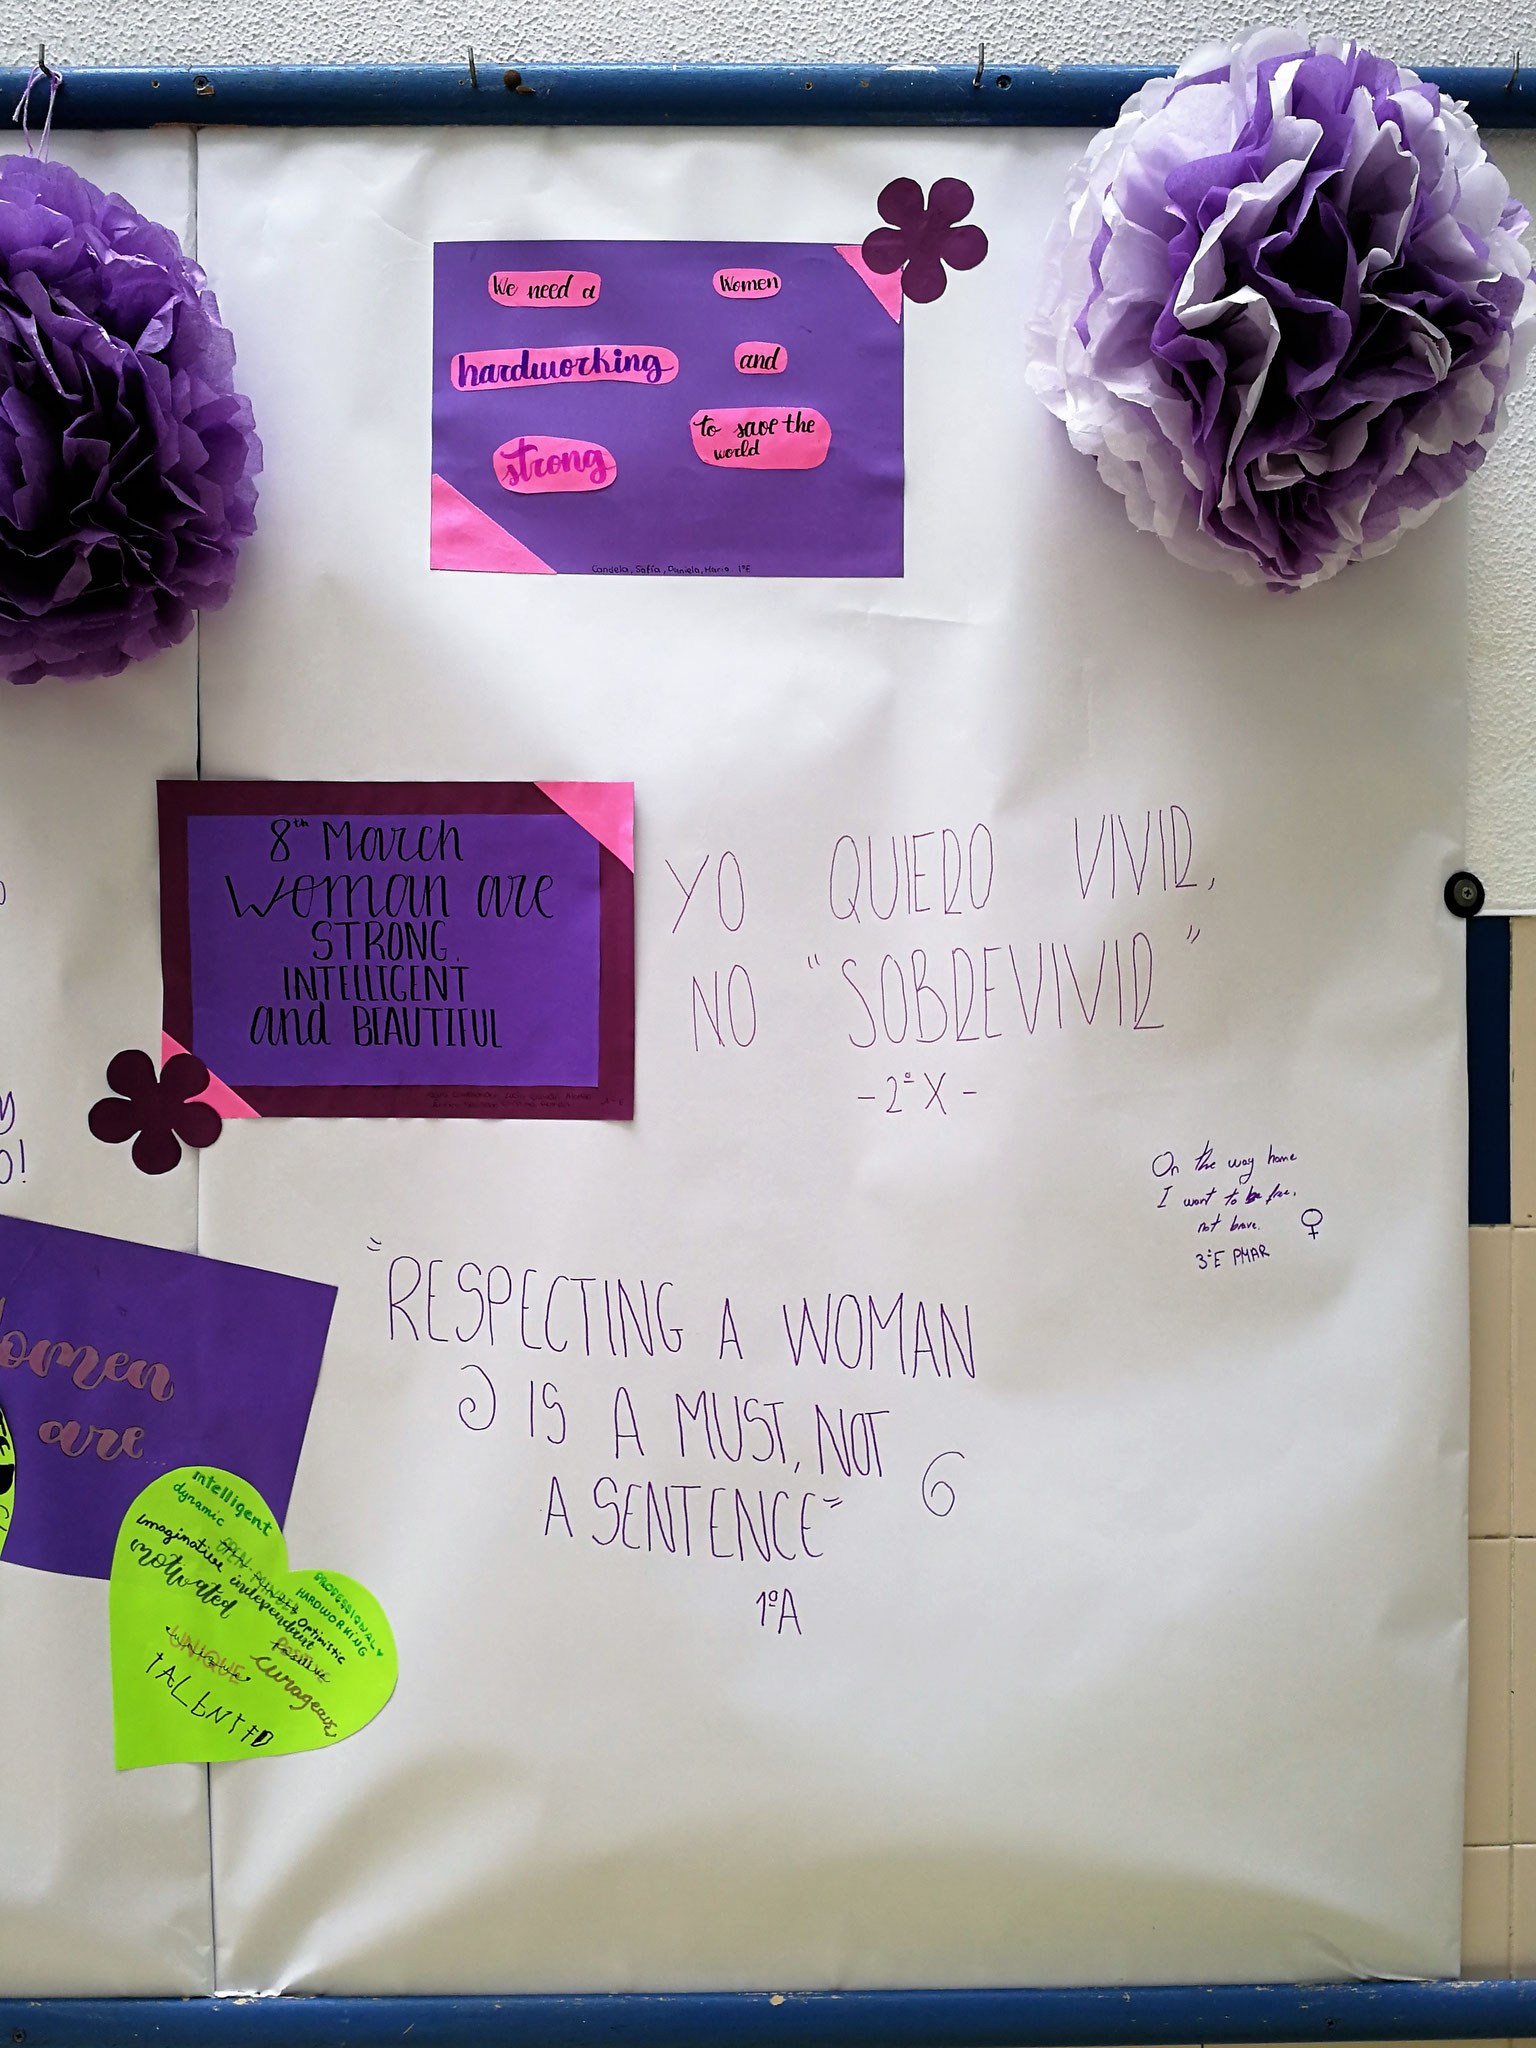 We need a
hardworking
strong
Women
and
to save the
world
Candela, Sofía, Daniela, Mario 1ºE
8th March
Woman are
STRONG,
INTELLIGENT
and BEAUTIFUL
YO QUIERO VIVIR,
NO "SOBREVIVIR"
-2ºX-
On the way home
I want to be free,
not brave.
3ºE PMAR
"RESPECTING A WOMAN
IS A MUST, NOT
A SENTENCE"
1ºA
omen
are...
intelligent
dynamic
imaginative
motivated
independent
PROFESSIONAL
HARDWORKING
Optimistic
positive
UNIQUE
curageous
TALENTED